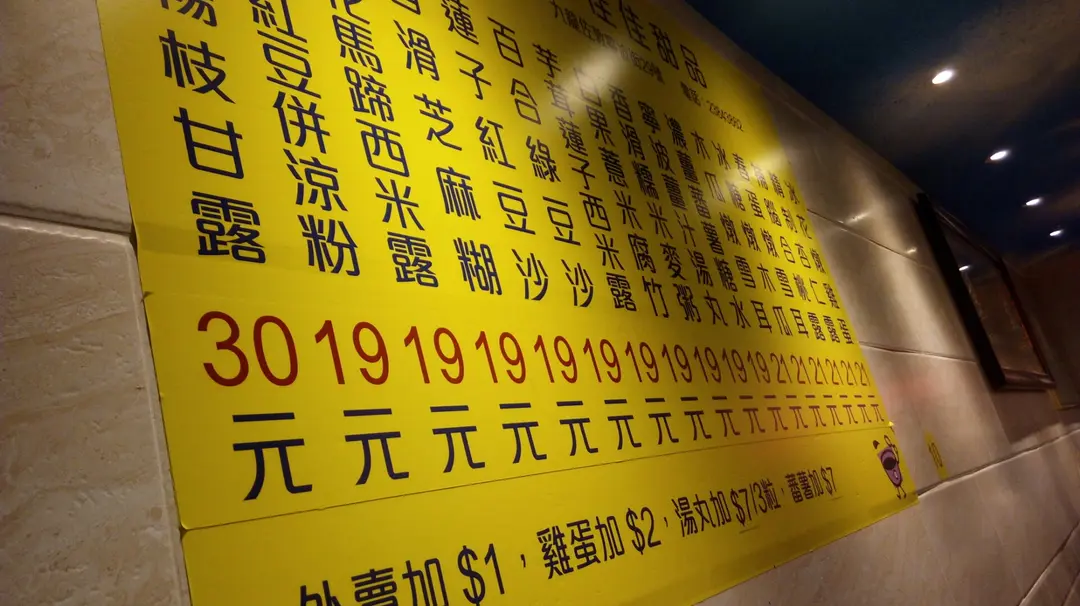 佳佳甜品
冰花燉雞蛋 21元
精制杏仁露 21元
補腦合桃露 21元
春蛋燉雪耳 21元
冰糖燉木瓜 21元
木瓜燉雪耳 21元
濃薑蕃薯糖水 19元
寧波薑汁湯丸 19元
香滑糯米麥粥 19元
白果薏米腐竹 19元
芋茸蓮子西米露 19元
百合綠豆沙 19元
蓮子紅豆沙 19元
滑芝麻糊 19元
馬蹄西米露 19元
紅豆併涼粉 19元
楊枝甘露 30元
外賣加 $1，雞蛋加 $2，湯丸加 $7/3粒，蕃薯加 $7
10